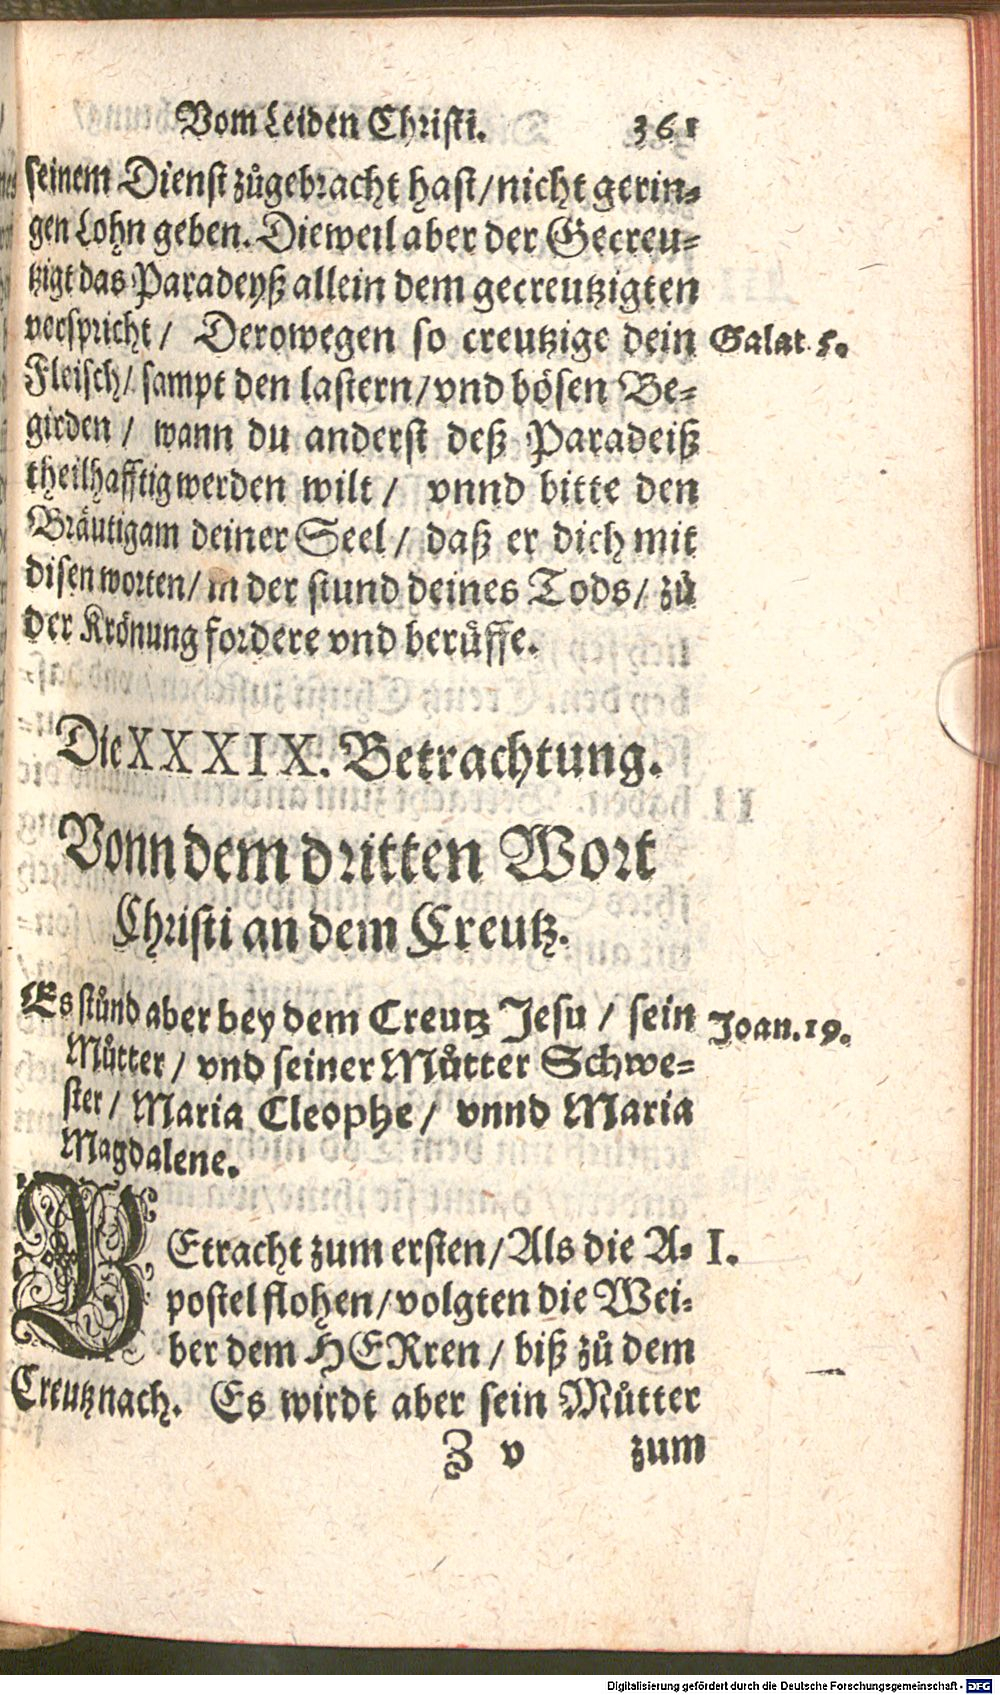 Vom Leiden Christi. 361
seinem Dienst zůgebracht hast/nicht gerin-
gen Lohn geben. Dieweil aber der Gecreu-
tzigt das Paradeyß allein dem gecreutzigten
verspricht/ Derowegen so creutzige dein Galat. 5.
Fleisch/ sampt den lastern/vnd bösen Be-
girden/ wann du anderst deß Paradeiß
theilhafftig werden wilt/ vnnd bitte den
Bräutigam deiner Seel/ daß er dich mit
disen worten/ in der stund deines Tods/ zů
der Krönung fordere vnd berüffe.
Die XXXIX. Betrachtung.
Vonn dem dritten Wort
Christi an dem Creutz.
Es stůnd aber bey dem Creutz Jesu / sein Joan. 19.
Můtter / vnd seiner Můtter Schwe-
ster / Maria Cleophe / vnnd Maria
Magdalene.
BEtracht zum ersten/Als die A- I.
postel flohen/volgten die Wei-
ber dem HERren / biß zů dem
Creutz nach. Es wirdt aber sein Můtter
Z v zum
Digitalisierung gefördert durch die Deutsche Forschungsgemeinschaft - DFG